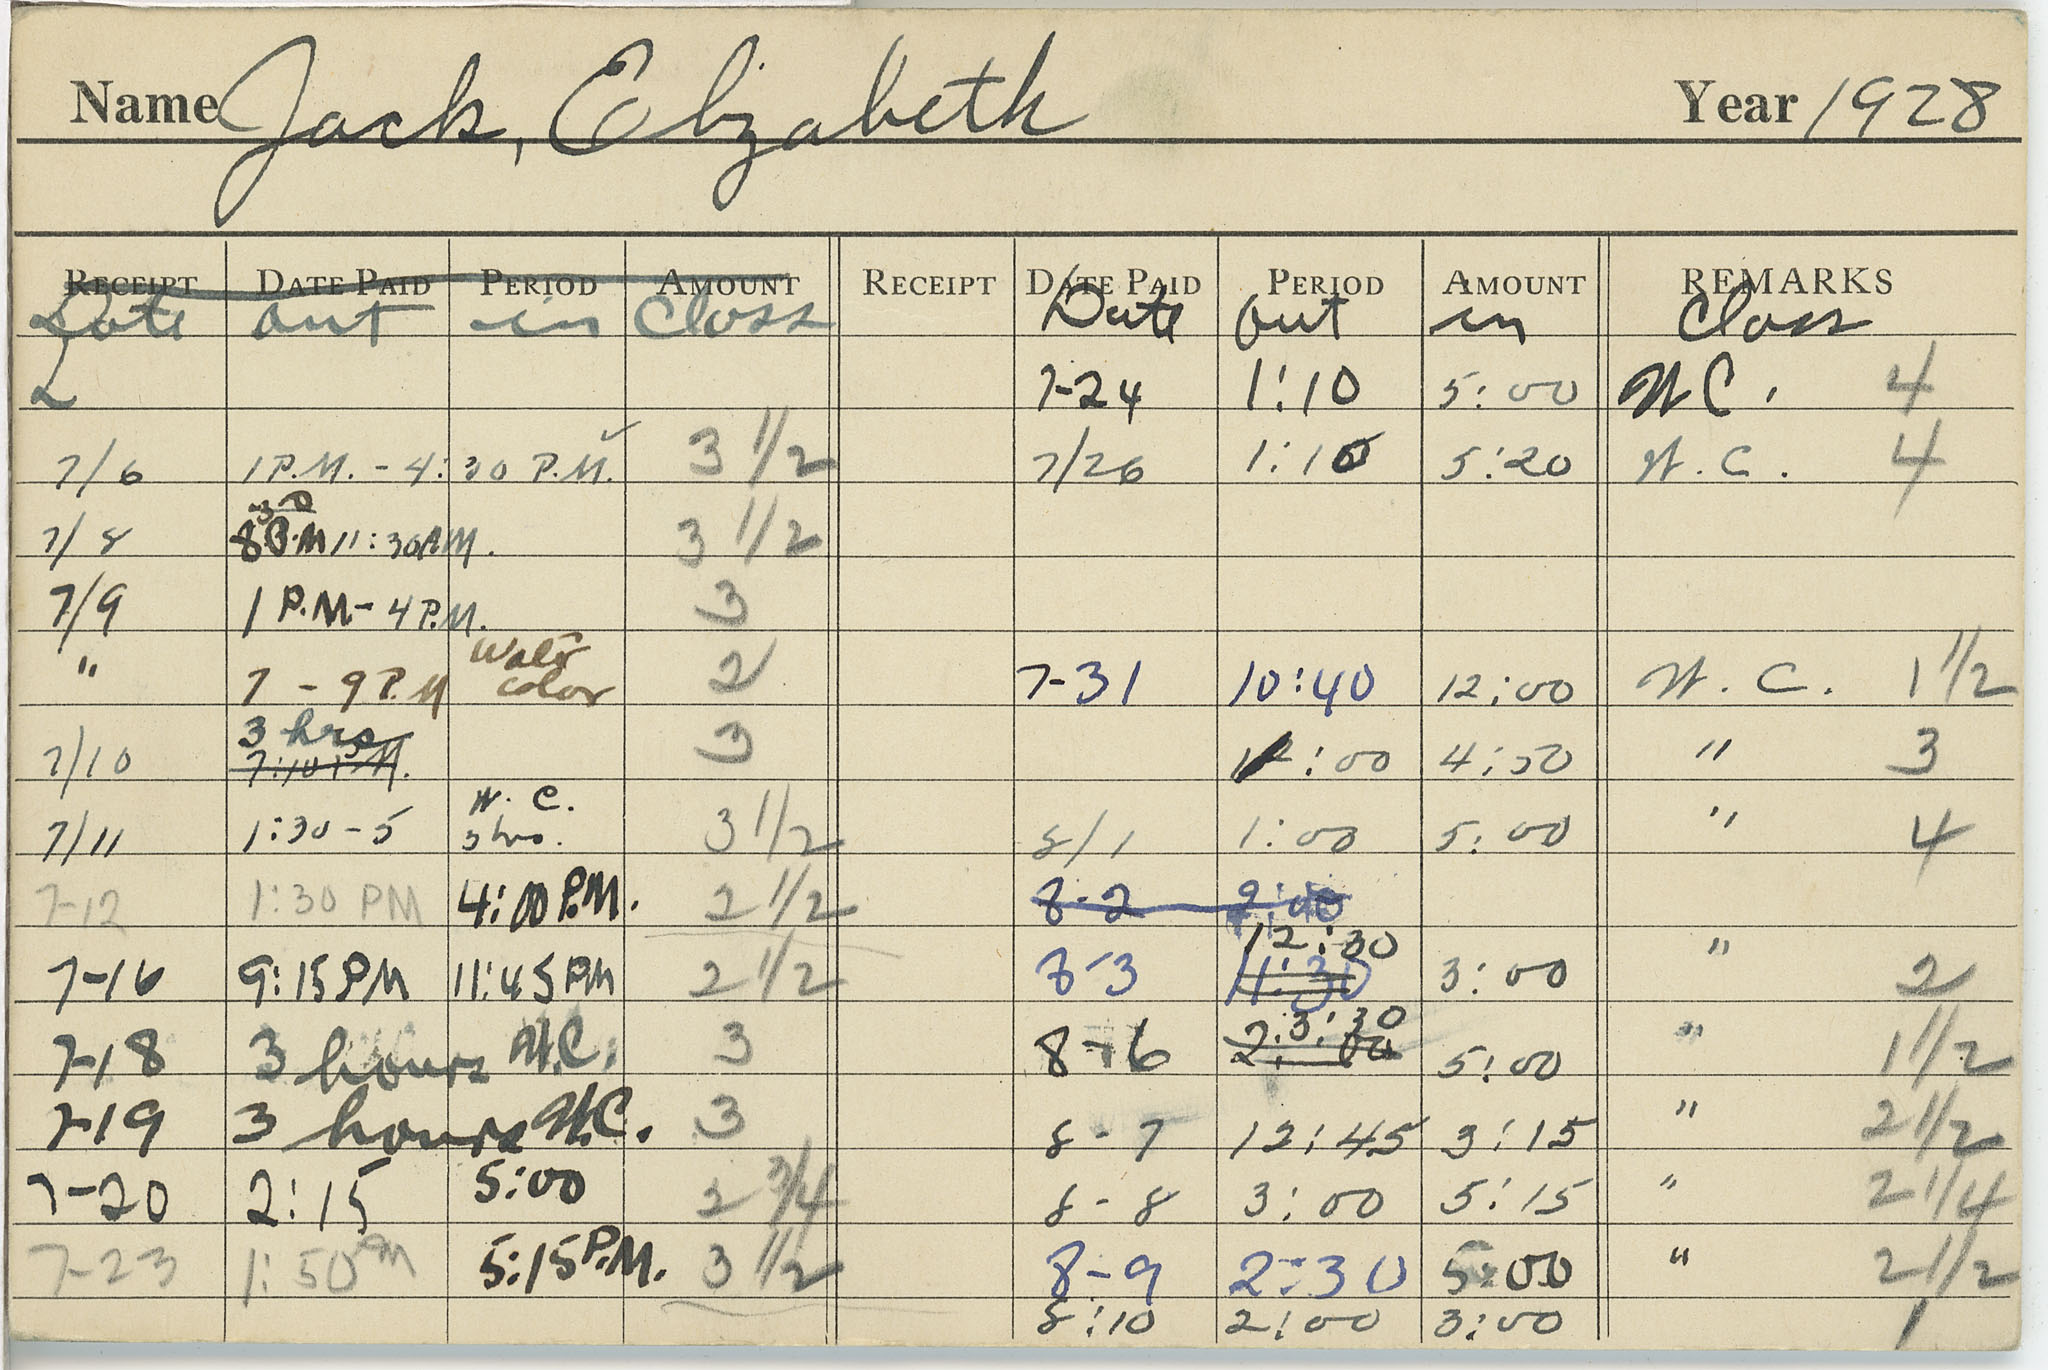 Name Jack, Elizabeth Year 1928
RECEIPT DATE PAID PERIOD AMOUNT RECEIPT DATE PAID PERIOD AMOUNT REMARKS
Date out in Class Date out in Class
7-24 1:10 5:00 W C. 4
7/6 1 P.M. - 4:30 P.M. 3 1/2 7/26 1:10 5:20 W. C. 4
30
7/8 8 P.M 11:30 A.M. 3 1/2
7/9 1 P.M - 4 P.M. 3
" 7 - 9 P.M Water color 2 7-31 10:40 12:00 W. C. 1 1/2
3 hrs
7/10 7:10 P.M. 3 :00 4:50 " 3
W. C.
7/11 1:30-5 3 hrs. 3 1/2 8/1 1:00 5:00 " 4
7-12 1:30 PM 4:00 P.M. 2 1/2 8-2 9:00
12:30
7-16 9:15 PM 11:45 PM 2 1/2 8-3 11:30 3:00 " 2
3:30
7-18 3 hours W.C. 3 8-6 2:00 5:00 " 1 1/2
7-19 3 hours W.C. 3 8-7 12:45 3:15 " 2 1/2
7-20 2:15 5:00 2 3/4 8-8 3:00 5:15 " 2 1/4
7-23 1:50 PM 5:15 P.M. 3 1/2 8-9 2:30 5:00 " 2 1/2
8:10 2:00 3:00 1